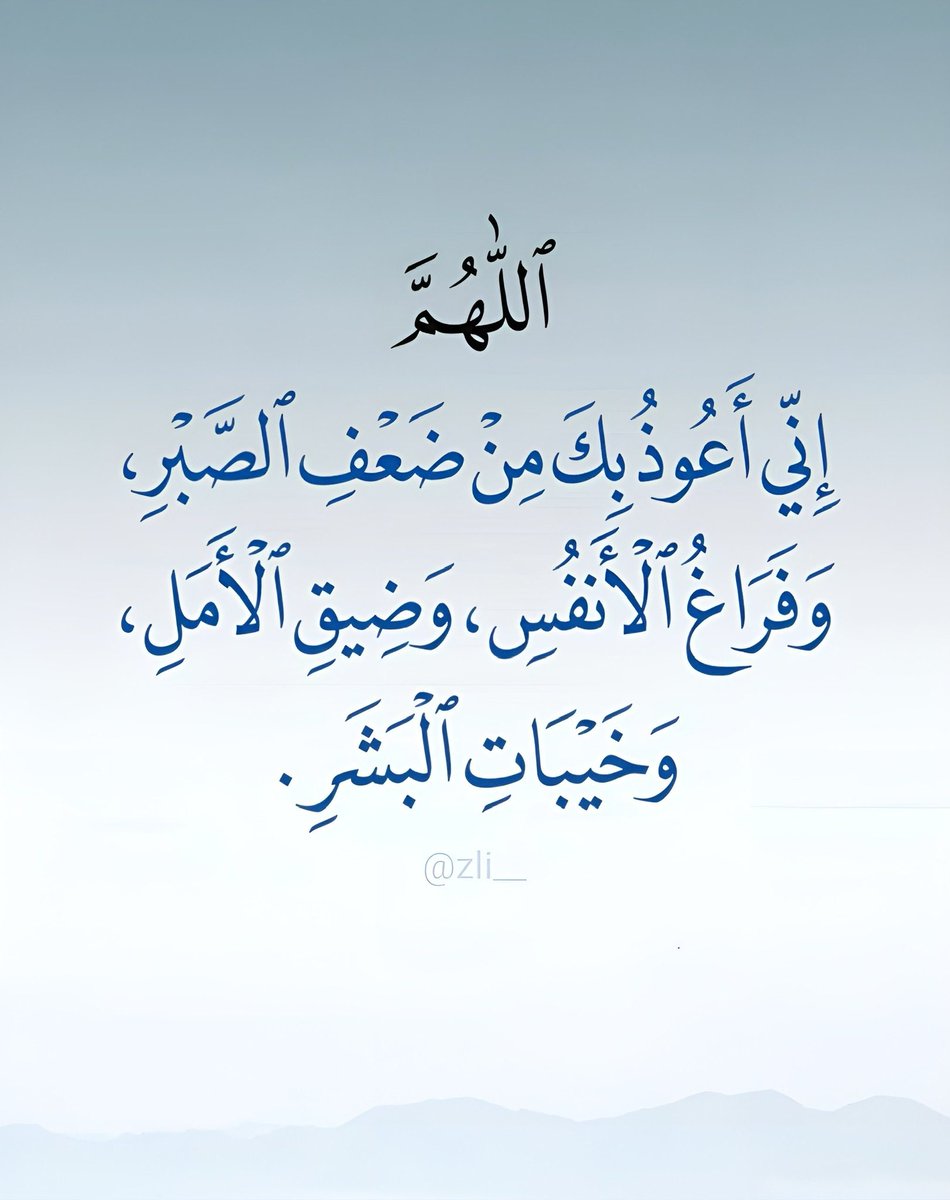 ٱللّٰهُمَّ
إِنِّي أَعُوذُ بِكَ مِنْ ضَعْفِ ٱلصَّبْرِ،
وَفَرَاغُ ٱلْأَنفُسِ، وَضِيقِ ٱلْأَمَلِ،
وَخَيْبَاتِ ٱلْبَشَرِ.
@zli__